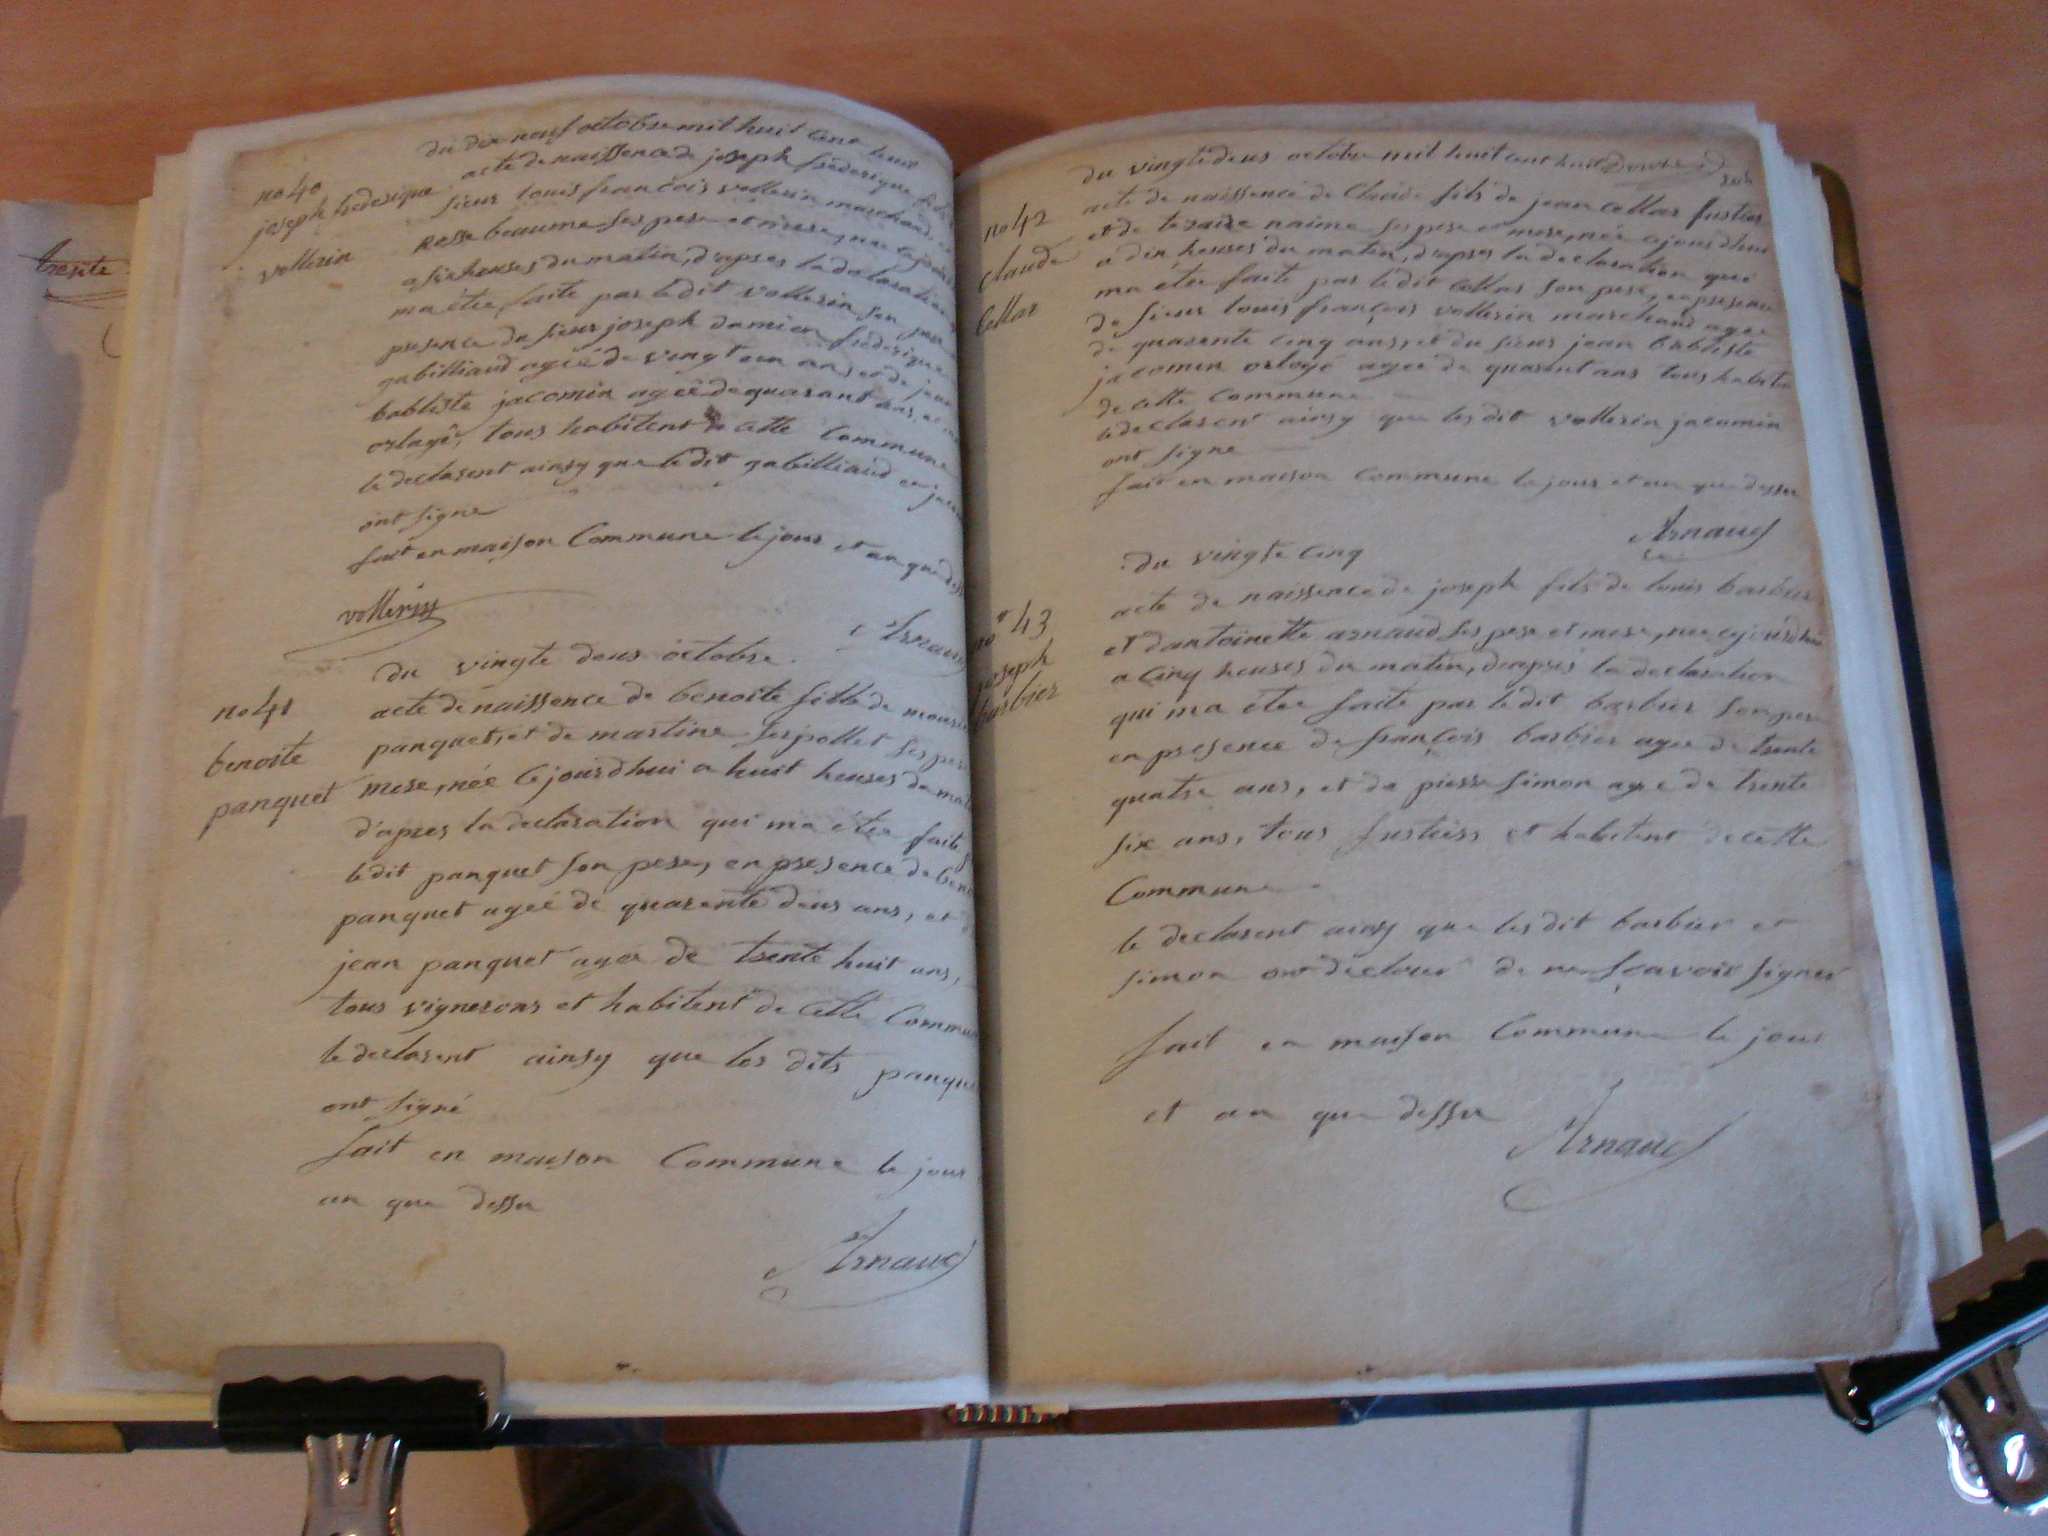 tresite
no 40
joseph frederique
vollerin
du dix neuf octobre mil huit cent huit
acte de naissence de joseph frederique fils
sieur louis françois vollerin marchand
Rosse beaume ses pere et mere, nee
a six heures du matin, d'apres la declaration
ma étée faite par le dit vollerin son pere
presence du sieur joseph damien frederique
gabilliaud ageé de vingt un ans et de jean
babtiste jacomin ageé de quarant ans,
orlagé, tous habitent cette Commune
le declarent ainsy que le dit gabilliaud
ont signe
fait en maison Commune le jour et an que dessu
vollerin
Arnaud
no 41
benoite
panquet
du vingte deus octobre
acte de naissence de benoite fille de
panquet, et de martine serpollet ses pere
mere, née cejourdhui a huit heures du
d'apres la declaration qui ma étée faite
le dit panquet son pere, en presence de
panquet ageé de quarente deus ans, et
jean panquet ageé de trente huit ans,
tous vignerons et habitent de cette Commune
le declarent ainsy que les dits panquet
ont signé
fait en maison Commune le jour
an que dessu
Arnaud
no 42
claude
Collar
du vingtedeus octobre mil huit cent huit
acte de naissence de Claude fils de jean collar fustier
et de teraize naime ses pere et mere, née cejourdhui
a dix heuses du matin, d'apres la declaration qui
ma étée faite par le dit Collar son pere, en presence
de sieur louis françois vollerin marchand ageé
de quarente cinq ans, et du sieur jean babtiste
jacomin orlogé ageé de quarent ans tous habitent
de cette Commune
le declarent ainsy que les dit vollerin jacomin
ont signe
fait en maison Commune le jour et an que dessu
Arnaud
no 43
joseph
barbier
du vingte cinq
acte de naissence de joseph fils de louis barbier
et dantoinette arnaud ses pere et mere, nee cejourdhui
a cinq heuses du matin, daprés la declaration
qui ma étée faite par le dit barbier son pere
en presence de françois barbier ageé de trente
quatre ans, et de pierre simon ageé de trente
six ans, tous fustiers et habitent de cette
Commune
le declarent ainsy que les dit barbier et
simon ont de ne sçavoir signer
fait en maison Commune le jour
et an que dessu
Arnaud